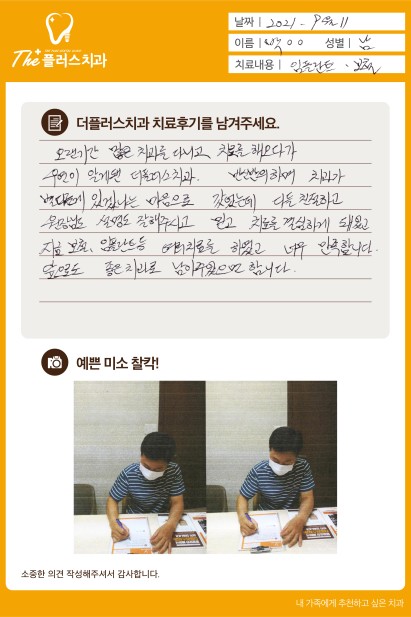 The+플러스치과
날짜 | 2021. 9월 11
이름 | 백○○ 성별 | 남
치료내용 | 임플란트 · 보철
더플러스치과 치료후기를 남겨주세요.
오랜기간 많은 치과를 다니고, 치료를 해오다가
우연히 알게된 더플러스치과. 반신반의하며 치과가
있겠나는 마음으로 갔었는데 다들 친절하고
원장님도 설명도 잘해주시고 믿고 치료를 결심하게 됐었고
지금 보철, 임플란트등 여러치료를 하였고 너무 만족합니다.
앞으로도 좋은 치과로 남아주셨으면 합니다.
예쁜 미소 찰칵!
소중한 의견 작성해주셔서 감사합니다.
내 가족에게 추천하고 싶은 치과